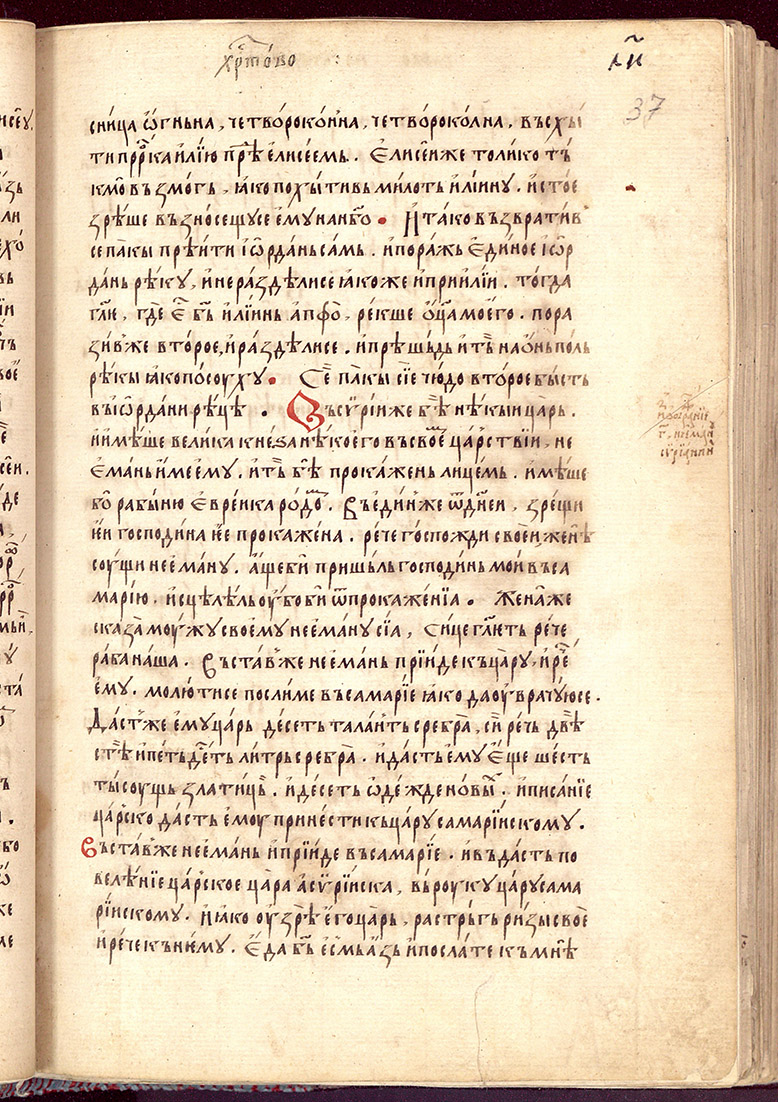 хрⷭ҇тово :
л҃и
37
сница ѡ҆гньна, четворокѻнна, четвороколна, въсхы
ти прⷪ҇рка илїю прⷣѣ елисеемь. Елисеиже толико тъ
кмо възмогь, ꙗко похытивь милоть илїину. и стое
зрѣше възносещусе ему на нб҃о. И тако възвратив
се пакы прѣити іѡрдань самь. и поражь единое іѡр
дань рѣку, и не раздѣлисе ꙗкоже и при илїи. тогда
гл҃и, где є҆ⷭ б҃ь илїинь апфѡ, рекше ѡц҃а моего. пора
зивже второе, и раздѣлисе. и прѣшьдь итⷮь на ѡнь поль
рѣкы ꙗко посоуху. Се пакы сїе чюдо второе бысть
въ іѡрдани рѣцѣ. Въ сѵрїи же бѣ нѣкыи царь.
и имѣше велика кнеѕа нѣкоего въ своеⷨ царствїи, не
емань име ему. и тъ бѣ прокажень лицемь. имѣше
бо рабыню евреика родоⷨ. Въ единже ѿ днеи, зрещи
іеи господина іее прокажена. рече госпожди своеи женѣ
соущи нееману. аще би пришьль господинь мои въ са
марїю. исцѣлѣль оубо би ѿ прокаженїа. Женаже
сказа моужу своему нееману сїа, сице гл҃ить рече
раба наша. Въставже нееманъ прїиде къ цару, и рⷱ҇е
ему. молютисе послиме въ самарїе ꙗко да оуврачуюсе.
Дастже ему царь десеть таланть сребра, сирⷱ҇ечь двѣ
стѣ и петьдесⷮеть литрь сребра. и дасть ему еще шесть
тысоушь златицъ. и десеть ѡдежде новыⷯ. и писанїе
царско дасть емоу принести къ цару самарїискому.
Въставже нееманъ и прїиде въ самарїе. и въдасть по
велѣнїе царское цара асѵрїиска, въ роуку цару сама
рїискому. и ꙗко оузрѣ его царь, растрьгь ризы свое
и рече къ нѥму. Еда б҃ь есмь азь и послате къ мнѣ